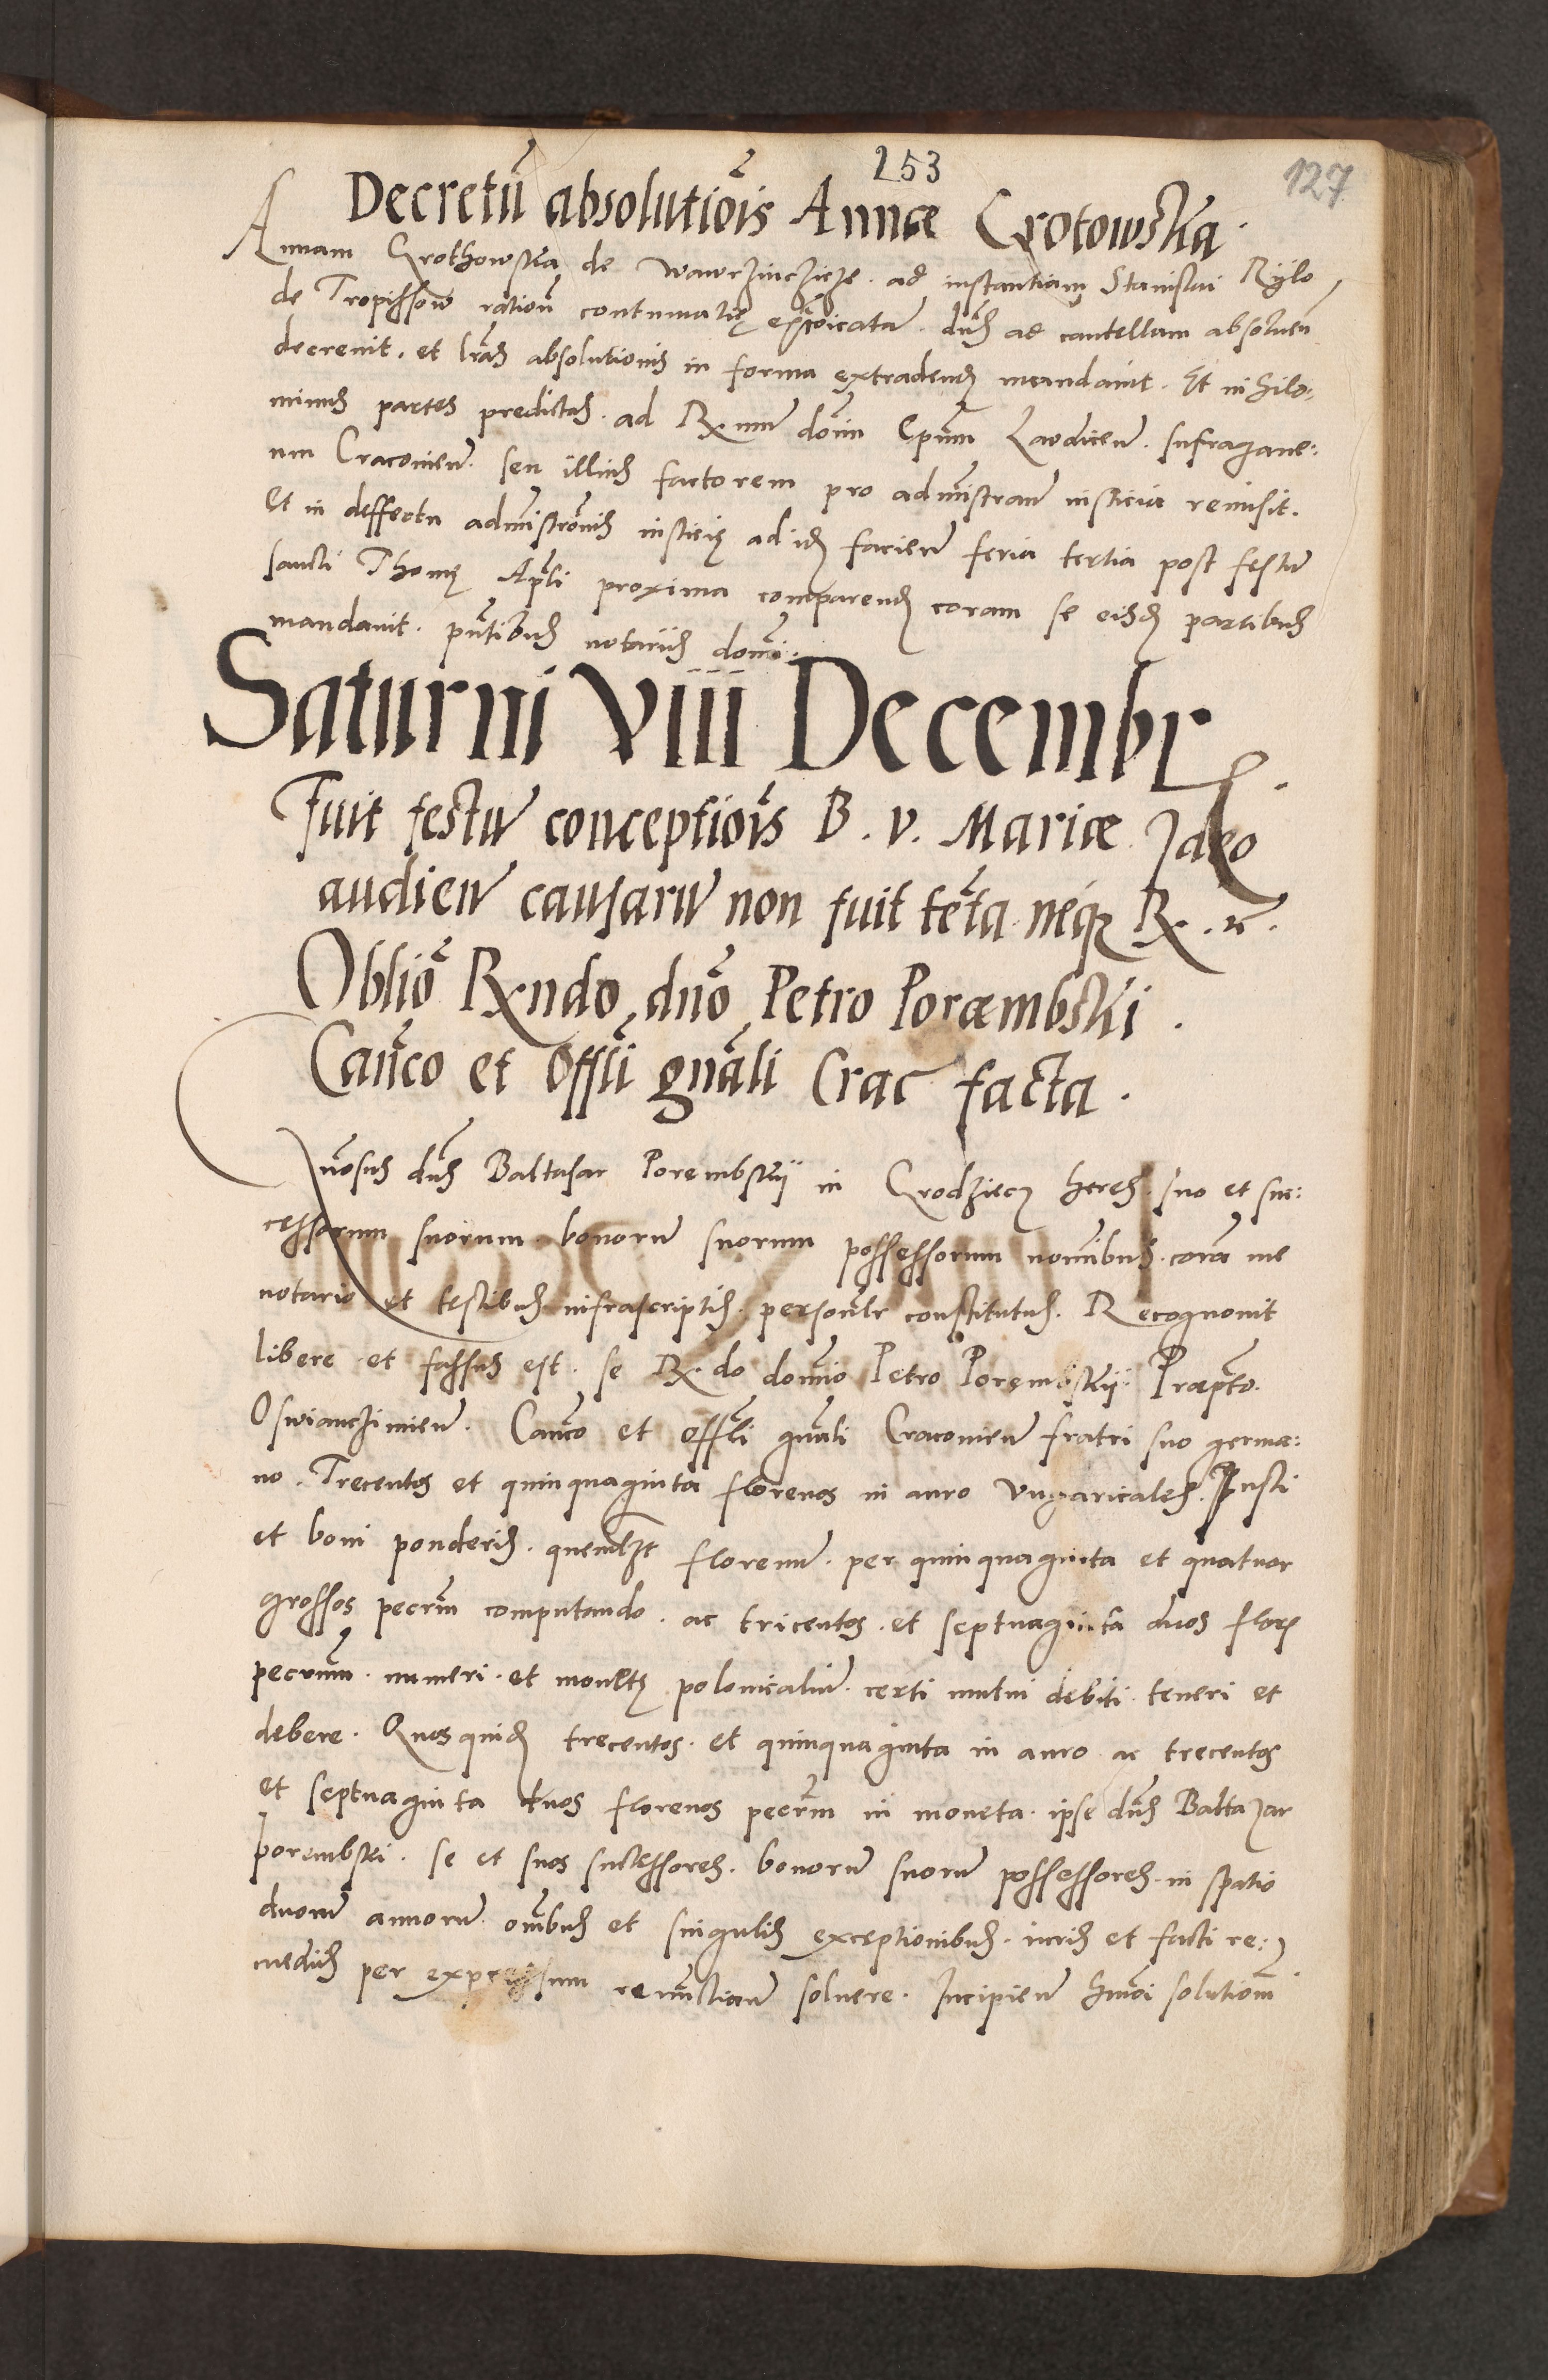 253
127
Decretũ absolutiõis Annæ Grotowska.
Annam Grothowska de Wawrzincziche. ad instantiam Stanislai Rÿlo
de Tropissow rationũ contumatię excõicatam. dñs ad cautellam absoluen
decreuit. et lrãs absolutionis in forma extradendas mandauit. Et nihilo:
minus partes predictas. ad Rx mum domin Epũm Laodiceñ. sufragane:
um Cracovieñ. seu illius factorem pro administrañ iusticia remisit.
Et in deffectu administrõnis iusticię ad id faciend feria tertia post festũ
sancti Thomę Apłi proxima comparendum coram se eisdem partibus
mandauit. pñtibus notariis domi:
Saturni VIII Decembr
Fuit festũ conceptiõis B. V. Mariæ. Ideo
audien causarũ non fuit tẽta neque Rx. rc.
Obliõ Rxndo dño Petro Poræmbski.
Cañco et Offłi gnãli Crac facta.
Gñosus dñs Baltasar Porembskÿ in Grodziecz heres. suo et suc:
cessorum suorum. bonorũ suorum possessorum nominibus. corã me
notario et testibus infrascriptis. personłr constitutus. Recognouit
libere et fassus est. se Rx.do domino Petro Porembskÿ. Præpto.
Oswiancziminieñ. Cañco et offłi gnãli Cracovieñ fratri suo germa:
no. Trecentos et quinquaginta florenos in auro Vngaricales. Justi
et boni ponderis. quemlibet florenum. per quinquaginta et quatuor
grossos pecrm computando. ac tricentos. et septuaginta duos flor
pecunm. numeri. et monetę polonicaliũ. certi mutui debiti. teneri et
debere. Quosquidem trecentos. et quinquaginta in auro ac trecentos
et septuaginta duos florenos pecrm in moneta. ipse dñs Baltazar
porembski. se et suos successores. bonorũ suorũ possessores. in spatio
duorũ annorũ. omnibus et singulis exceptionibus. iuris et facti re:
mediis per expressum renunctiañ soluere. Incipieñ hmõi solutionm